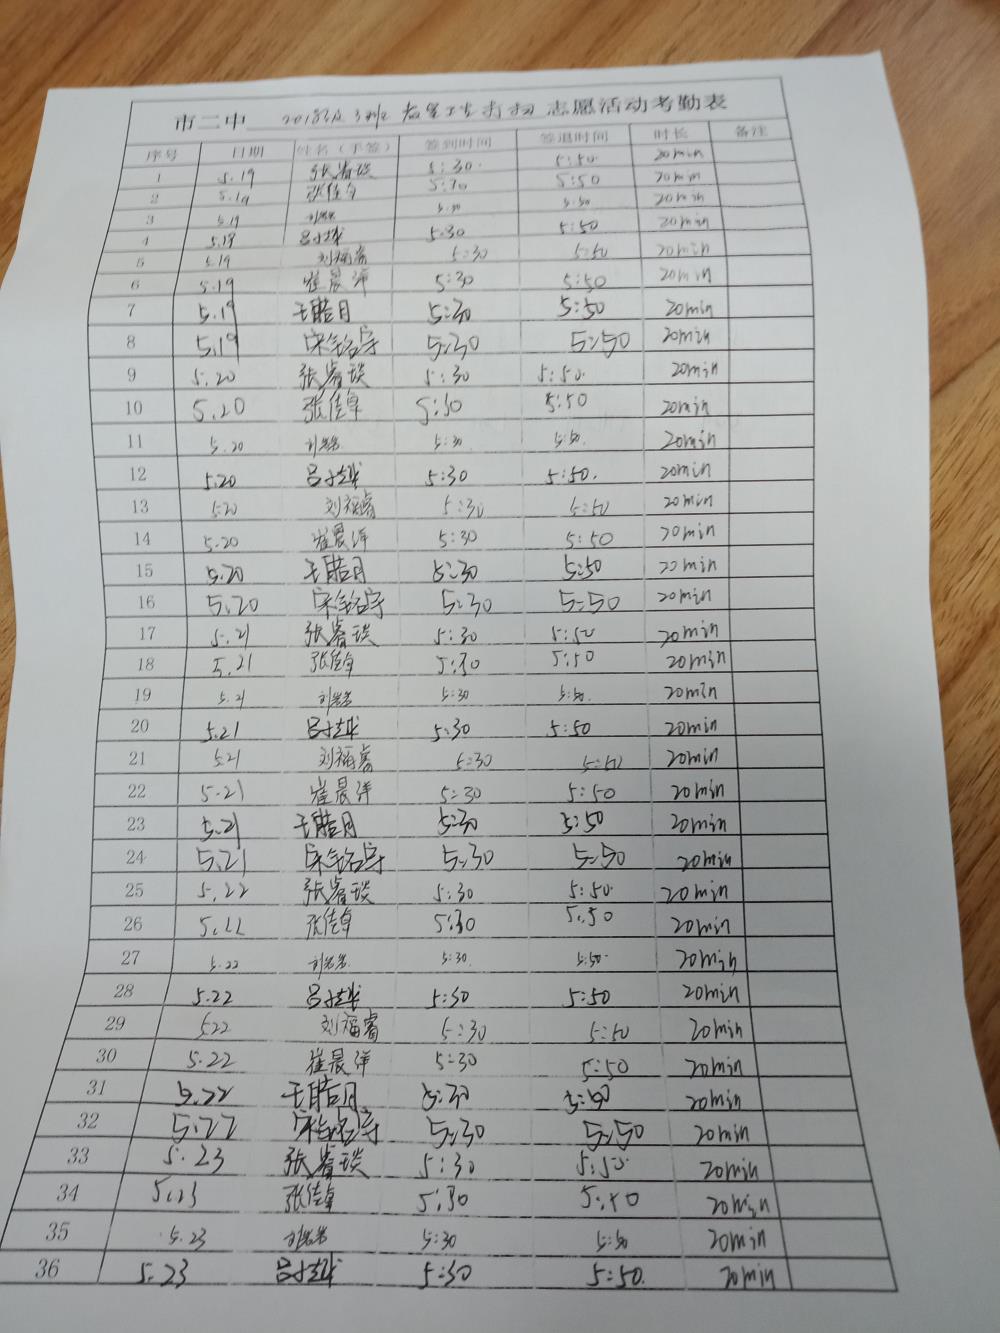 市二中 2018级3班 打扫 志愿活动考勤表
序号 日期 姓名（手签） 签到时间 签退时间 时长 备注
1 5.19 张睿琰 5:30 5:50 20min
2 5.19 张佳卓 5:30 5:50 20min
3 5.19 5:30 5:50 20min
4 5.19 吕越 5:30 5:50 20min
5 5.19 刘福睿 5:30 5:50 20min
6 5.19 崔晨洋 5:30 5:50 20min
7 5.19 王皓月 5:30 5:50 20min
8 5.19 宋铭宇 5:30 5:50 20min
9 5.20 张睿琰 5:30 5:50 20min
10 5.20 张佳卓 5:30 5:50 20min
11 5.20 5:30 5:50 20min
12 5.20 吕越 5:30 5:50 20min
13 5.20 刘福睿 5:30 5:50 20min
14 5.20 崔晨洋 5:30 5:50 20min
15 5.20 王皓月 5:30 5:50 20min
16 5.20 宋铭宇 5:30 5:50 20min
17 5.21 张睿琰 5:30 5:50 20min
18 5.21 张佳卓 5:30 5:50 20min
19 5.21 5:30 5:50 20min
20 5.21 吕越 5:30 5:50 20min
21 5.21 刘福睿 5:30 5:50 20min
22 5.21 崔晨洋 5:30 5:50 20min
23 5.21 王皓月 5:30 5:50 20min
24 5.21 宋铭宇 5:30 5:50 20min
25 5.22 张睿琰 5:30 5:50 20min
26 5.22 张佳卓 5:30 5:50 20min
27 5.22 5:30 5:50 20min
28 5.22 吕越 5:30 5:50 20min
29 5.22 刘福睿 5:30 5:50 20min
30 5.22 崔晨洋 5:30 5:50 20min
31 5.22 王皓月 5:30 5:50 20min
32 5.22 宋铭宇 5:30 5:50 20min
33 5.23 张睿琰 5:30 5:50 20min
34 5.23 张佳卓 5:30 5:50 20min
35 5.23 5:30 5:50 20min
36 5.23 吕越 5:30 5:50 20min